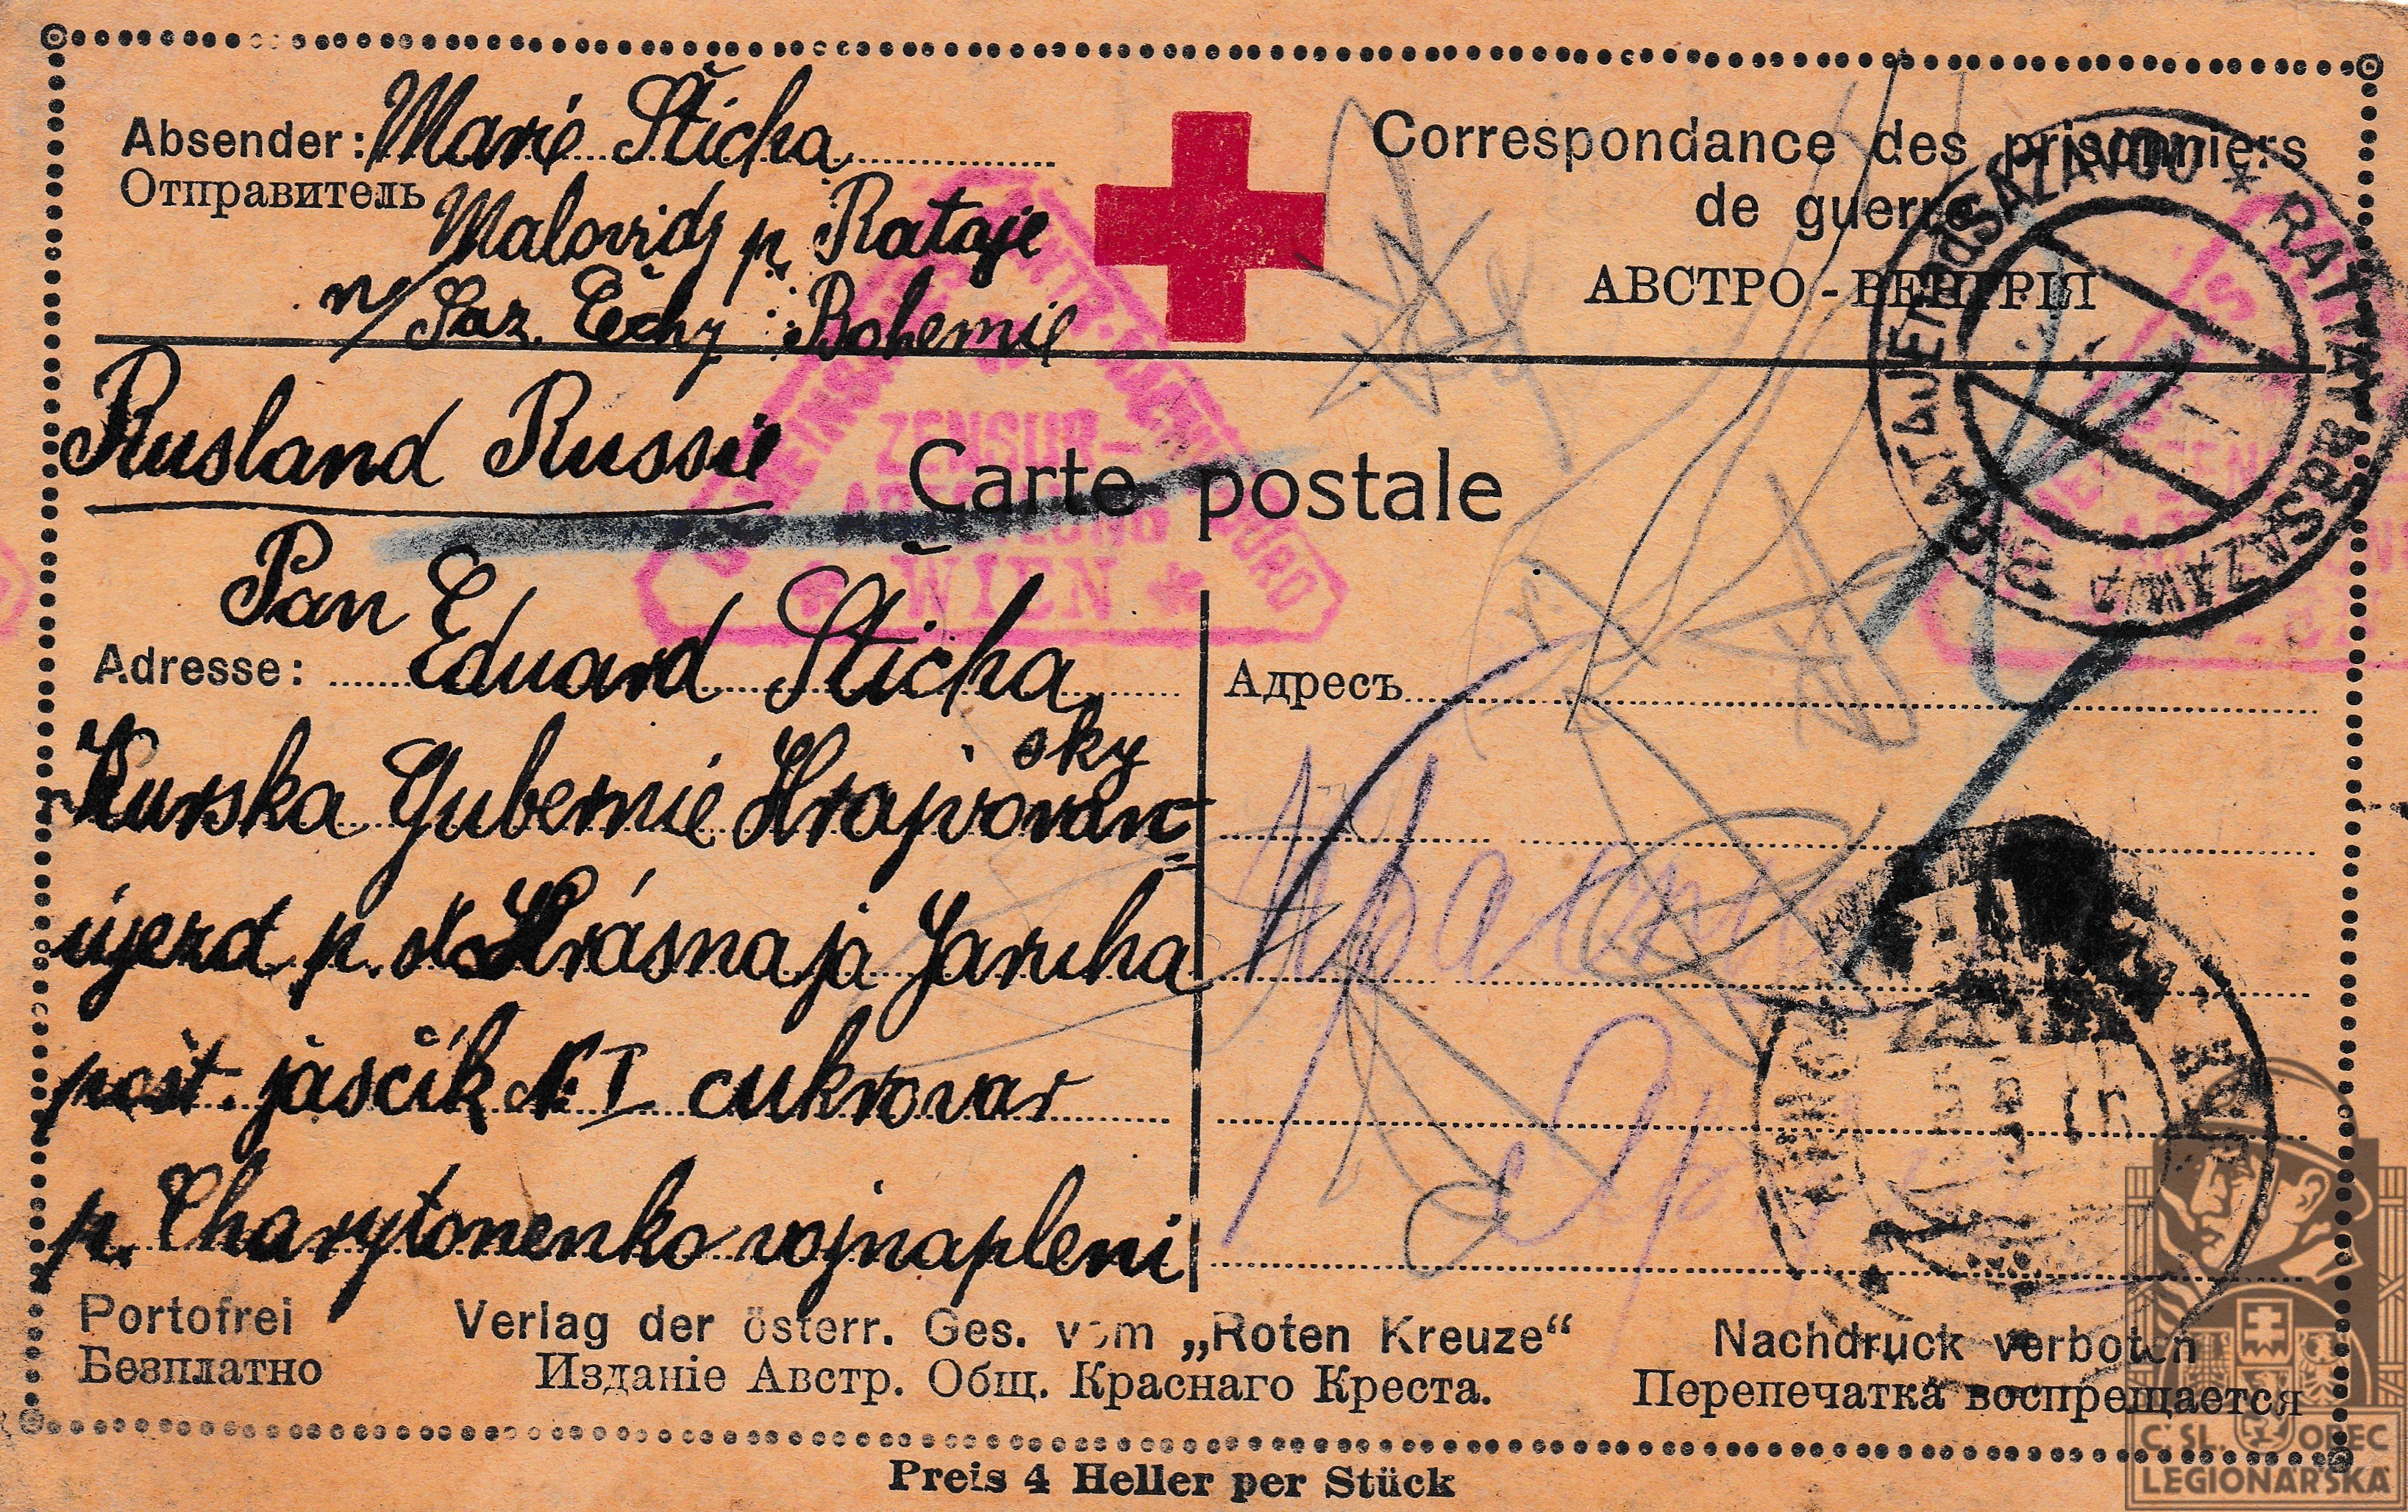 Absender: Marie Sticha
Отправитель
Malovidy p. Rataje
n/Saz. Čechy : Bohemie
Correspondance des prisonniers
de guerre
АВСТРО-ВЕНГРІЯ
Rusland Russie
Carte postale
ZENSUR-
ABTEILUNG
WIEN
RATTAJ a.d. SAZAWA
RATAJE n. SÁZAVOU
Pan
Adresse: Eduard Stičha
Адресъ
Kurska Gubernie Hrajvoron
sky
ujezd p. st. Krásnaja Jaruha
post. jaščik N. I cukrovar
p. Charytonenko vojnapleni
Portofrei
Безплатно
Verlag der österr. Ges. vom „Roten Kreuze“
Изданіе Австр. Общ. Краснаго Креста.
Nachdruck verboten
Перепечатка воспрещается
Preis 4 Heller per Stück
Č SL. OBEC
LEGIONÁŘSKÁ